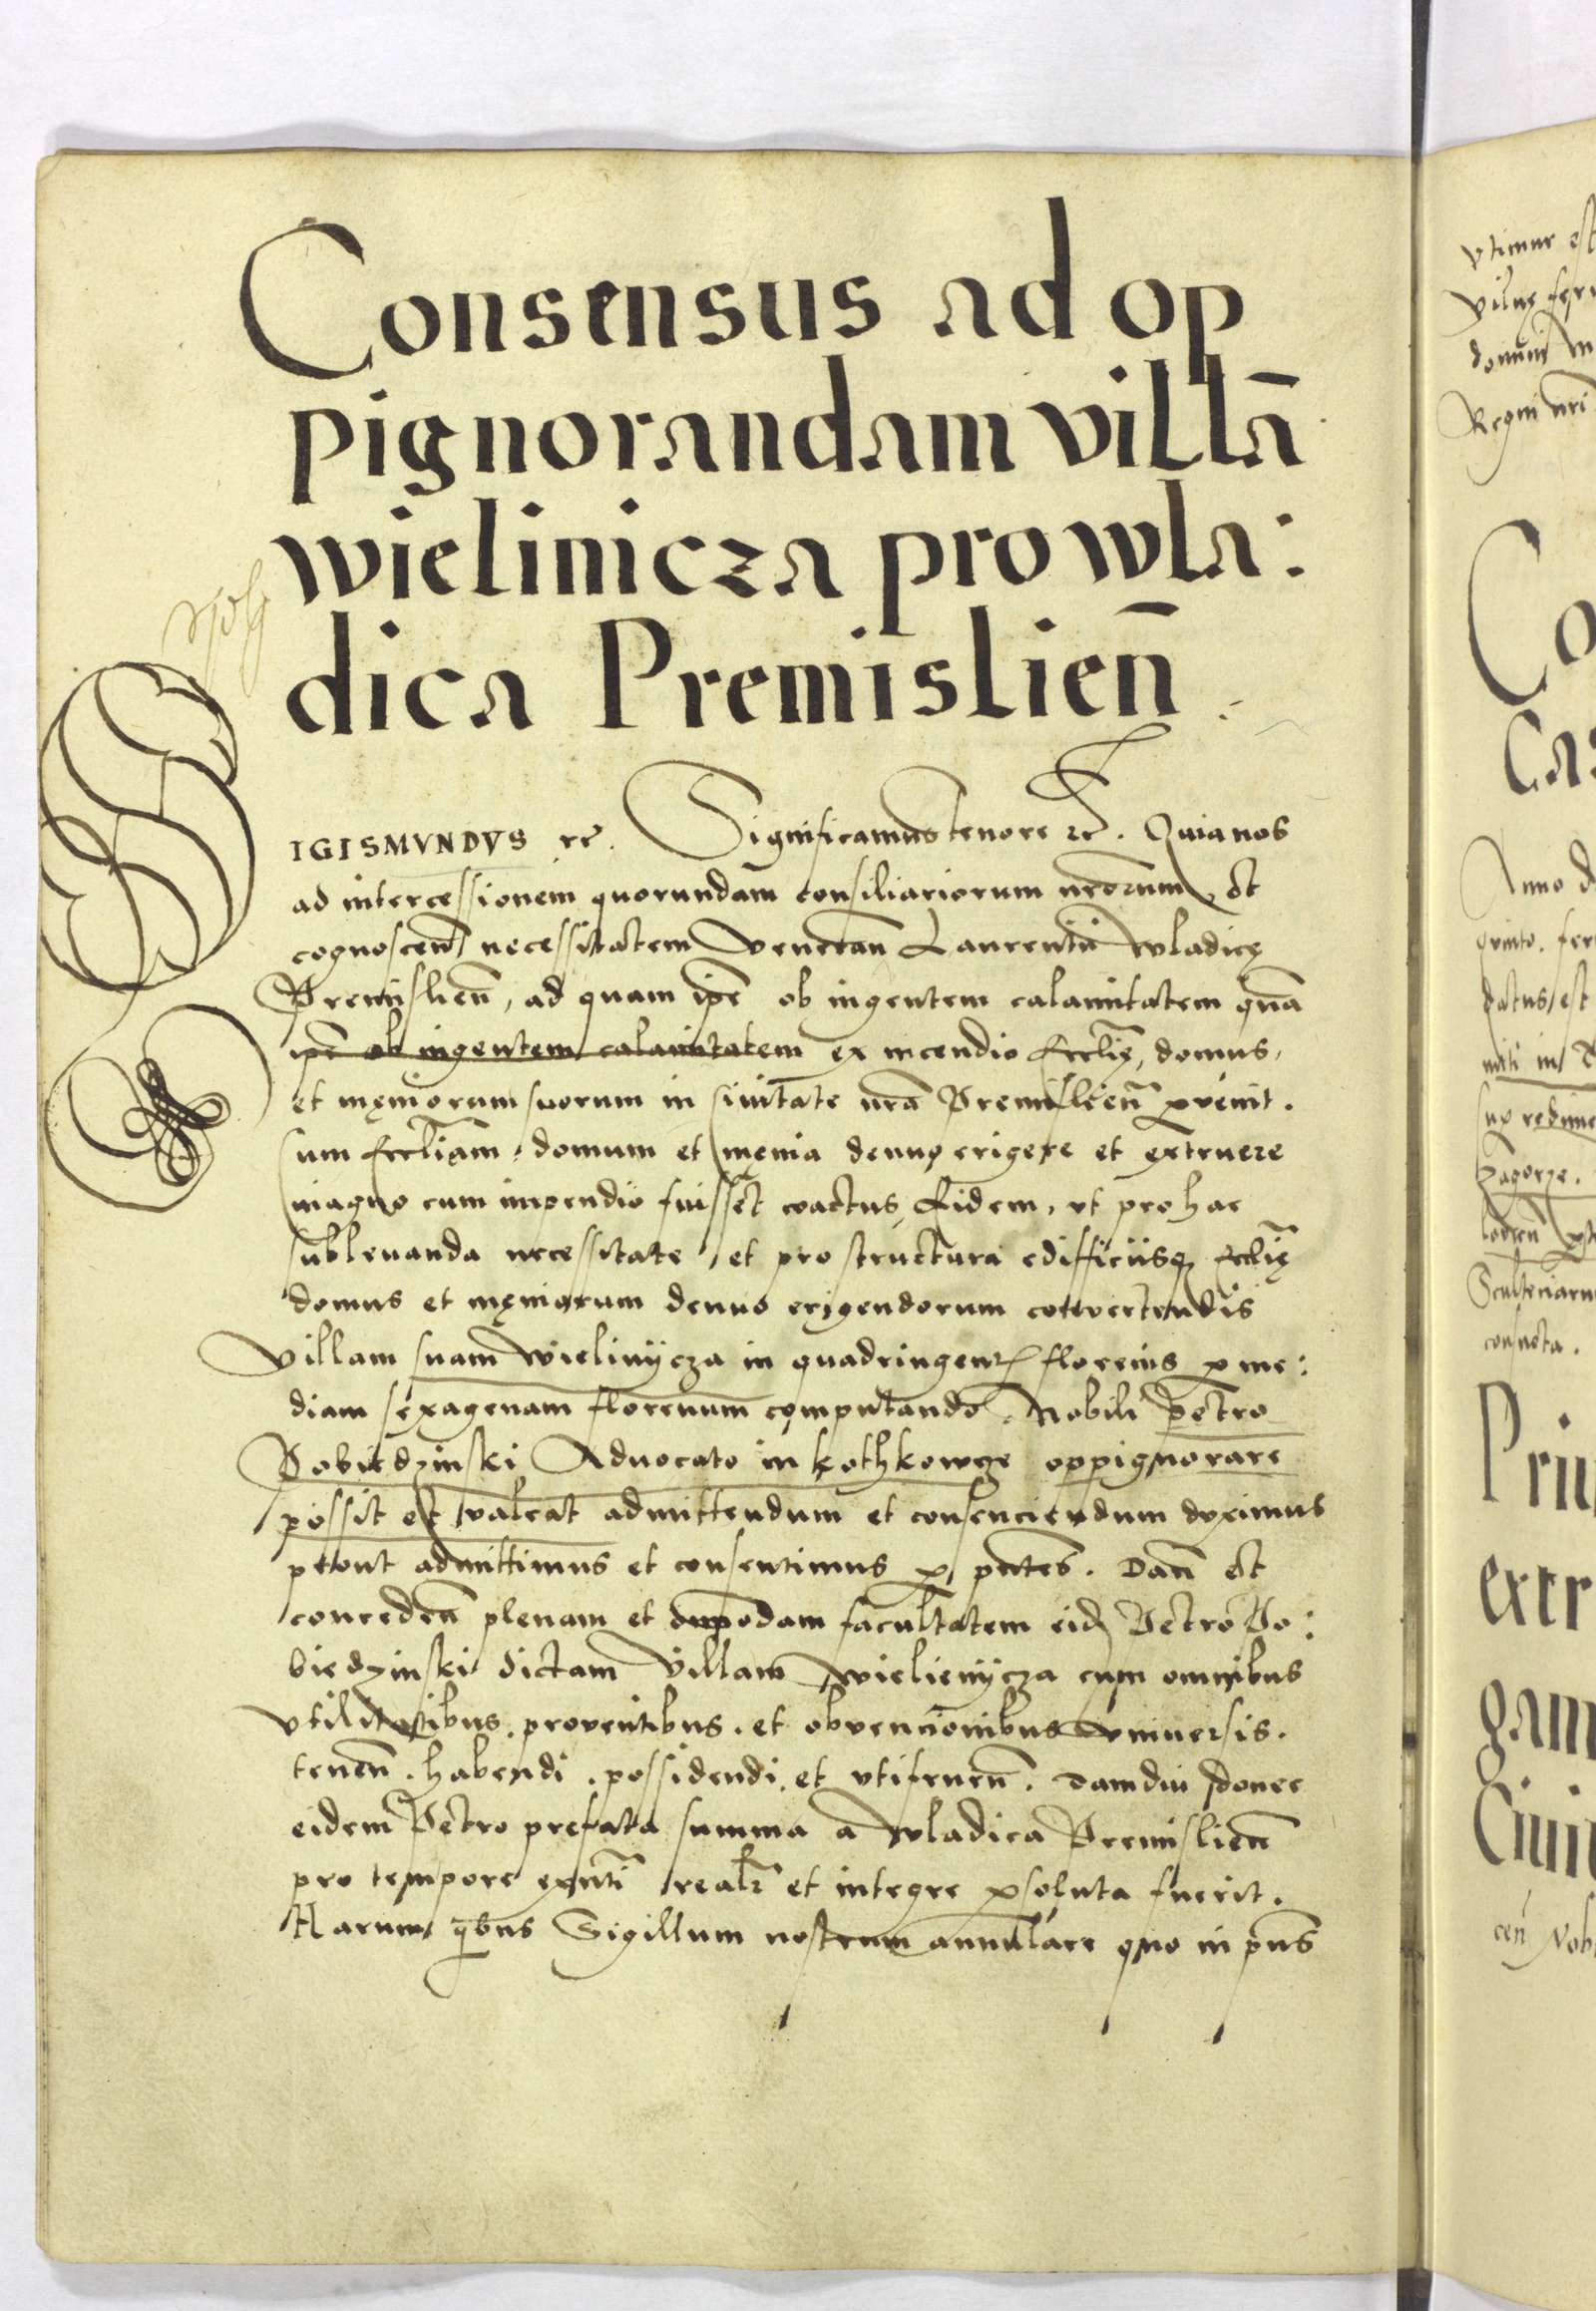 Consensus ad op
pignorandam villā
wielinicza pro wla:
dica Premislien̄
SIGISMVNDVS rc. Significamus tenore rc. Quia nos
ad intercessionem quorundam consiliariorum nrōrum, et
cognoscen̄ necessitatem veneran̄ Laurentii wladicę
Premislien̄, ad quam ipē ob ingentem calamitatem quā
ipē ob ingentem calamitatem ex incendio Ecclię, domus,
et męniorum suorum in Civitate nrā Premislien̄ pvenit.
cum Eccliam, domum et męnia denuo erigere et extruere
magno cum impendio fuisset coactus, Eidem, vt pro hac
sublevanda necessitate, et pro structura edifficiisq, Ecclię
domus et męniorum denuo erigendorum convertendis
villam suam wielinÿcza in quadringent florenis p me:
diam sexagenam florenum computando. Nobili Petro
Pobiedzinski Advocato in Kothkowcze oppignorare
possit et valeat admittendum et consenciendum duximus
prout admittimus et consentimus p pntēs. Dan̄ et
conceden̄ plenam et om̄pōdam facultatem eid Petro Po:
biedzinski dictam villam wielienÿcza cum omnibus
vtilitatibus, proventibus, et obvencionibus vniuersis.
tenen̄. habendi. possidendi et vtifruen̄. Tamdiu donec
eidem Petro prefata summa a wladica Premislien̄
pro tempore exn̄ti realr et integre psoluta fuerit.
Harum qibus Sigillum nostrum annulare quo in pn̄s